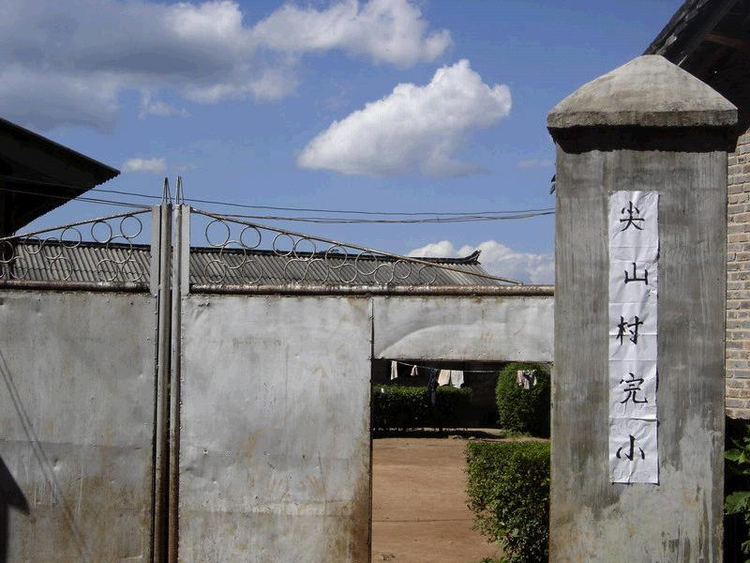 尖山村完小